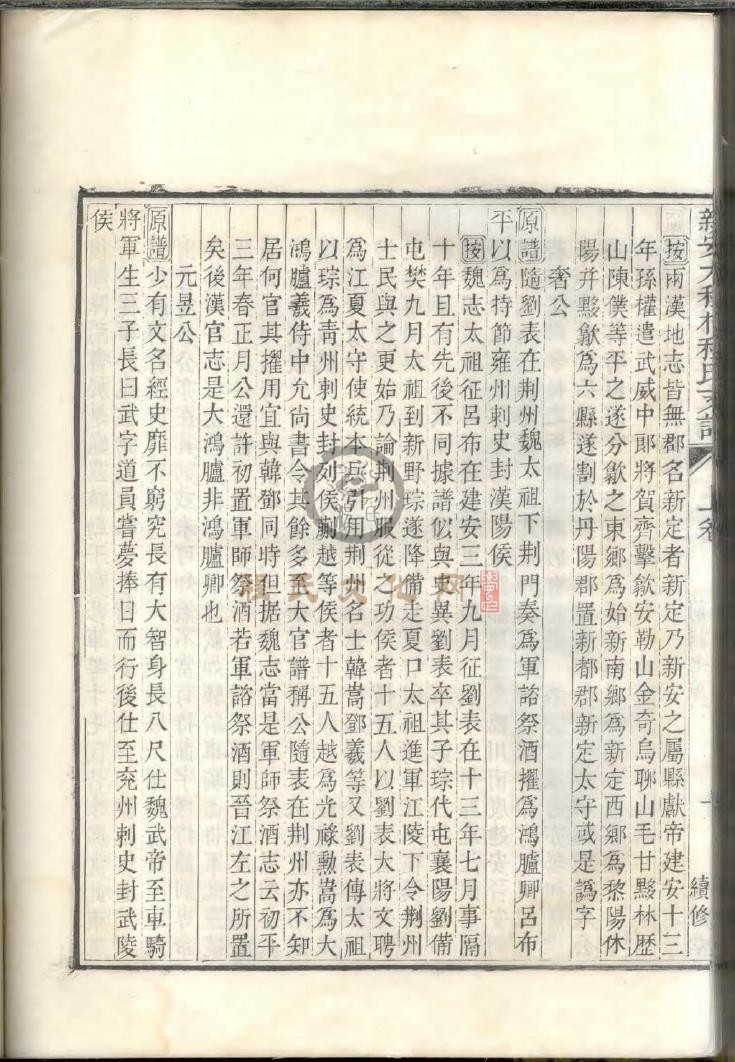 按兩漢地志皆無郡名新定者新定乃新安之屬縣獻帝建安十三
年孫權遣武威中郎將賀齊擊歙安勒山金奇烏聊山毛甘黟林歷
山陳僕等平之遂分歙之東鄉爲始新南鄉爲新定西鄉爲黎陽休
陽并黟歙爲六縣遂割於丹陽郡置新都郡新定太守或是譌字
奢公
原譜隨劉表在荆州魏太祖下荆門奏爲軍諮祭酒擢爲鴻臚卿呂布
平以爲持節雍州刺史封漢陽侯
按魏志太祖征呂布在建安三年九月征劉表在十三年七月事隔
十年且有先後不同據譜似與史異劉表卒其子琮代屯襄陽劉備
屯樊九月太祖到新野琮遂降備走夏口太祖進軍江陵下令荆州
士民與之更始乃論荆州服從之功侯者十五人以劉表大將文聘
爲江夏太守使統本兵引用荆州名士韓嵩鄧羲等又劉表傳太祖
以琮爲青州刺史封列侯蒯越等侯者十五人越爲光祿勳嵩爲大
鴻臚羲侍中允尚書令其餘多至大官譜稱公隨表在荆州亦不知
居何官其擢用宜與韓鄧同時但据魏志當是軍師祭酒志云初平
三年春正月公還許初置軍師祭酒若軍諮祭酒則晉江左之所置
矣後漢官志是大鴻臚非鴻臚卿也
元昱公
原譜少有文名經史靡不窮究長有大智身長八尺仕魏武帝至車騎
將軍生三子長曰武字道員嘗夢捧日而行後仕至兖州刺史封武陵
侯
續修
程氏文化网